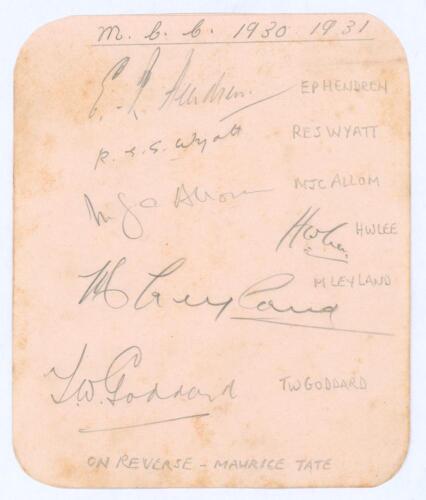 M.C.C. 1930 1931
E. P. Hendren EP HENDREN
R. E. S. Wyatt RES WYATT
M J C Allom MJC ALLOM
HW Lee HW LEE
M Leyland M LEYLAND
T.W. Goddard TW GODDARD
ON REVERSE - MAURICE TATE